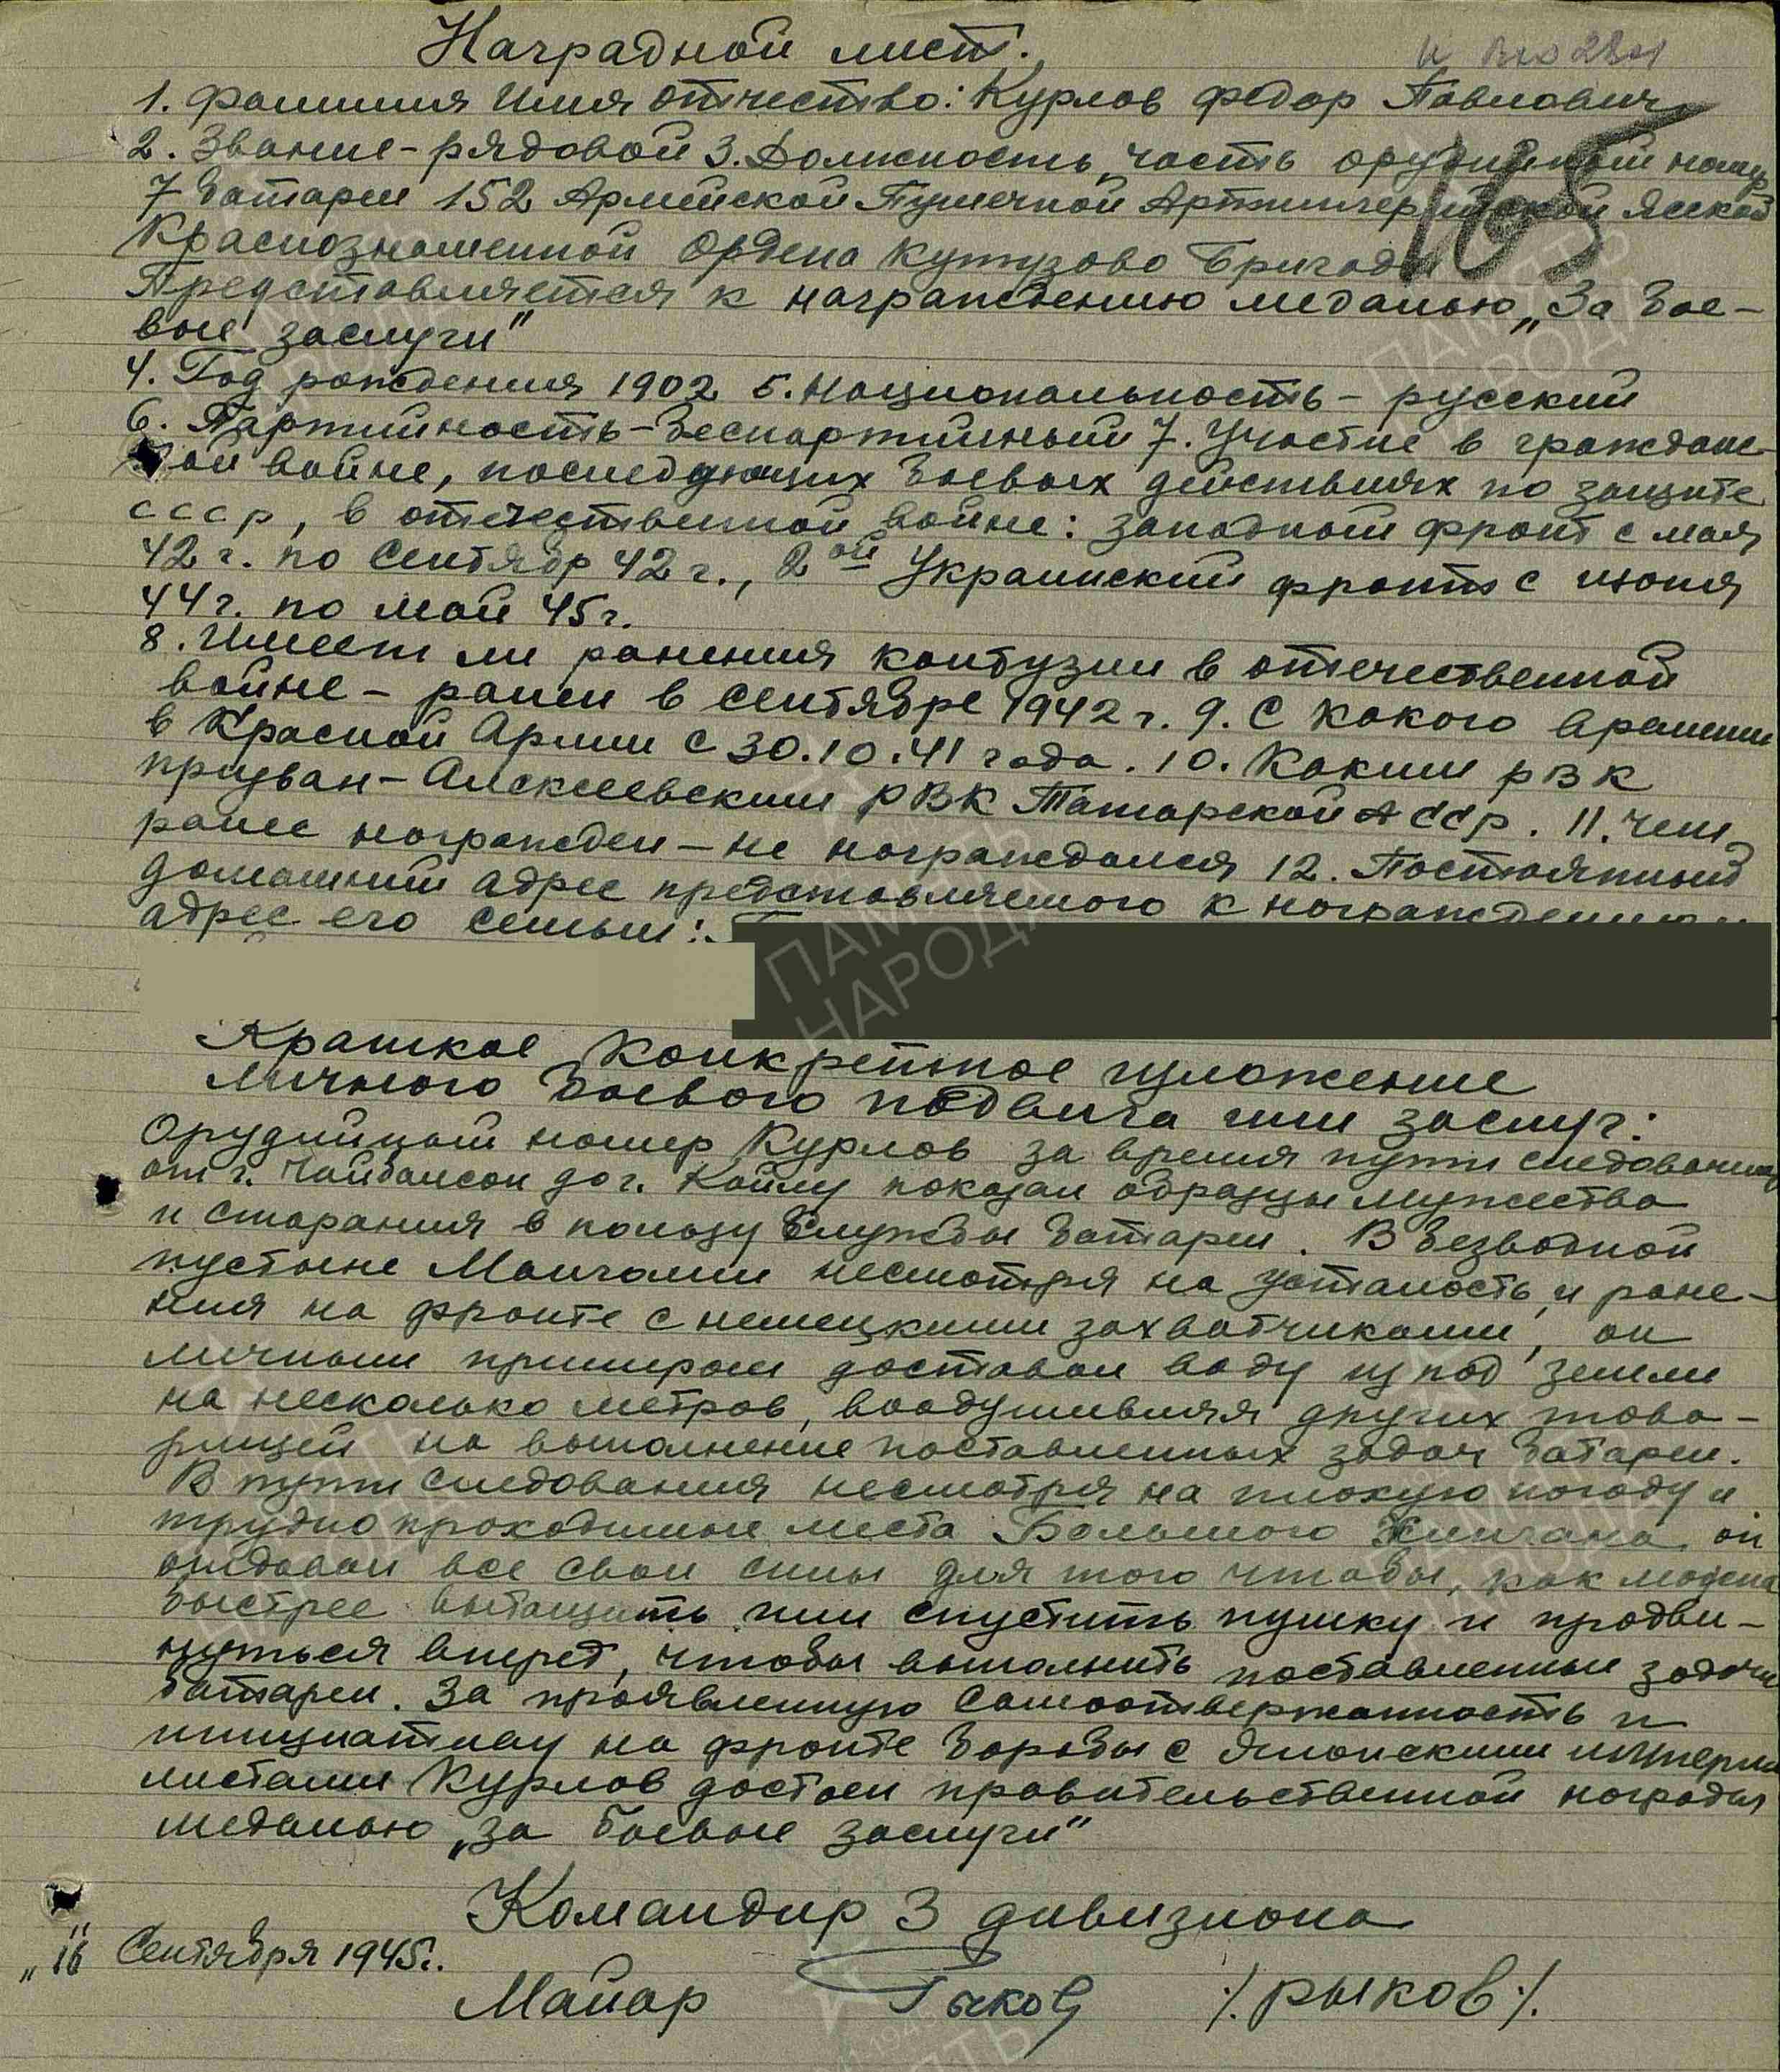 Наградной лист.
1. Фамилия Имя отчество: Курлов Федор Павлович
2. Звание - рядовой 3. Должность, часть орудийный номер
165
7 батареи 152 Армейской Пушечной Артиллерийской Ясской
Краснознаменной Ордена Кутузова Бригады
Представляется к награждению медалью „За бое-
вые заслуги"
4. Год рождения 1902 5. Национальность - русский
6. Партийность - беспартийный 7. Участие в граждане-
кой войне, последующих боевых действиях по защите
СССР, в отечественной войне: западный фронт с мая
42 г. по Сентябр 42 г., 2ой Украинский фронт с июня
44 г. по май 45 г.
8. Имеет ли ранения контузии в отечественной
войне - ранен в сентябре 1942 г. 9. С какого времени
в Красной Армии с 30.10.41 года. 10. Каким РВК
призван - Алексеевским РВК Татарской АССР. 11. Чем
ранее награжден - не награждался 12. Постоянный
домашний адрес представляемого к награждению и
адрес его семьи:
Краткое конкретное изложение
личного боевого подвига или заслуг:
Орудийный номер Курлов за время пути следования
от г. Чойбалсон до г. Кайлу показал образцы мужества
и старания в пользу службы батареи. В безводной
пустыне Манчалии несмотря на усталость и ране-
ния на фронте с немецкими захватчиками, он
личным примером доставал воду из под земли
на несколько метров, воодушевляя других това-
рищей на выполнение поставленных задач батареи.
В пути следования несмотря на плохую погоду и
трудно проходимые места Большого Хингана он
отдавал все свои силы для того чтобы, как можно
быстрее вытащить или спустить пушку и продви-
нуться вперед, чтобы выполнить поставленные задачи
батареи. За проявленную самоотверженность и
инициативу на фронте борьбы с Японскими империа
листами Курлов достоен правительственной награды
медалью „за боевые заслуги"
Командир 3 дивизиона
„16" Сентября 1945 г.
Майор Рыков /. Рыков /.
ПАМЯТЬ
НАРОДА